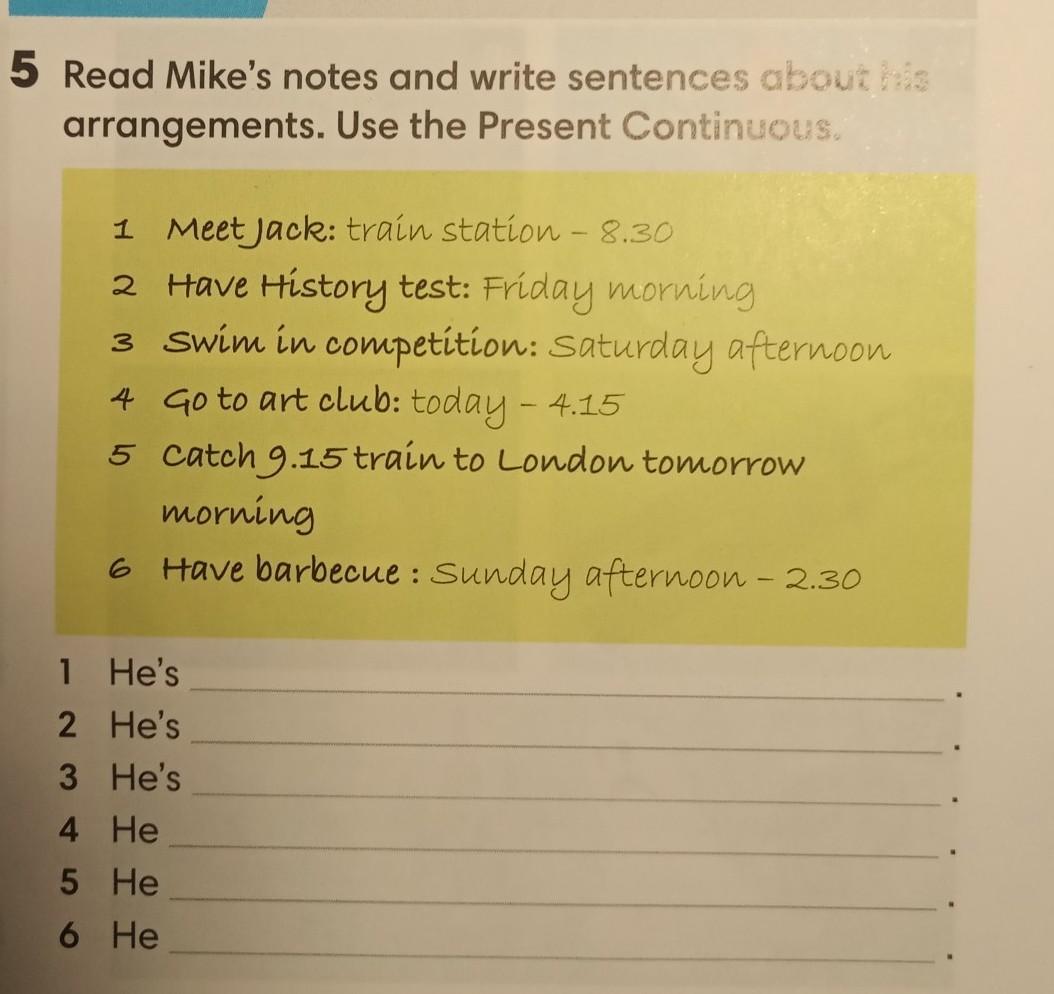 5 Read Mike's notes and write sentences about his
arrangements. Use the Present Continuous.
1 Meet Jack: train station – 8.30
2 Have History test: Friday morning
3 Swim in competition: Saturday afternoon
4 Go to art club: today – 4.15
5 Catch 9.15 train to London tomorrow
morning
6 Have barbecue : Sunday afternoon – 2.30
1 He's ____________________.
2 He's ____________________.
3 He's ____________________.
4 He ____________________.
5 He ____________________.
6 He ____________________.